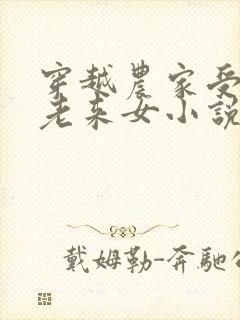 穿越農家受
老来女小說
戴姆勒-奔馳公